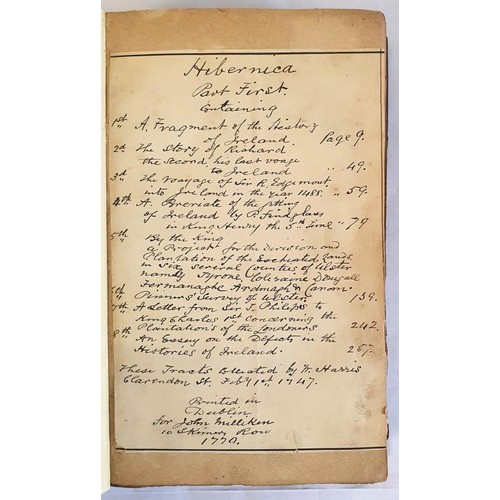 Hibernica
Part First.
Containing
1st A Fragment of the History
of Ireland. Page 9.
2d The Story of Richard
the Second his last voage
to Ireland " 49.
3d The Voyage of Sir R. Edgemont
into Ireland in the year 1488. " 59.
4th A Breviate of the getting
of Ireland by P. Findglass
in King Henry the 5th Time " 79
5th By the King
a Project for the Division and
Plantation of the Escheated Lands
in Six several Counties of Ulster
namely Tyrone, Colraine Donegall
Fermanaghe Ardmagh & Cavan.
6th Pinnar's Survey of Ulster 139.
7th A Letter from Sir T. Philips to
King Charles 1st concerning the
Plantations of the Londoners 242.
8th An Essay on the Defects in the
Histories of Ireland. 257.
These Tracts Collected by W. Harris
Clarendon St. Feby 1st 1747.
Printed in
Dublin
for John Milliken
10 Skinners Row
1770.